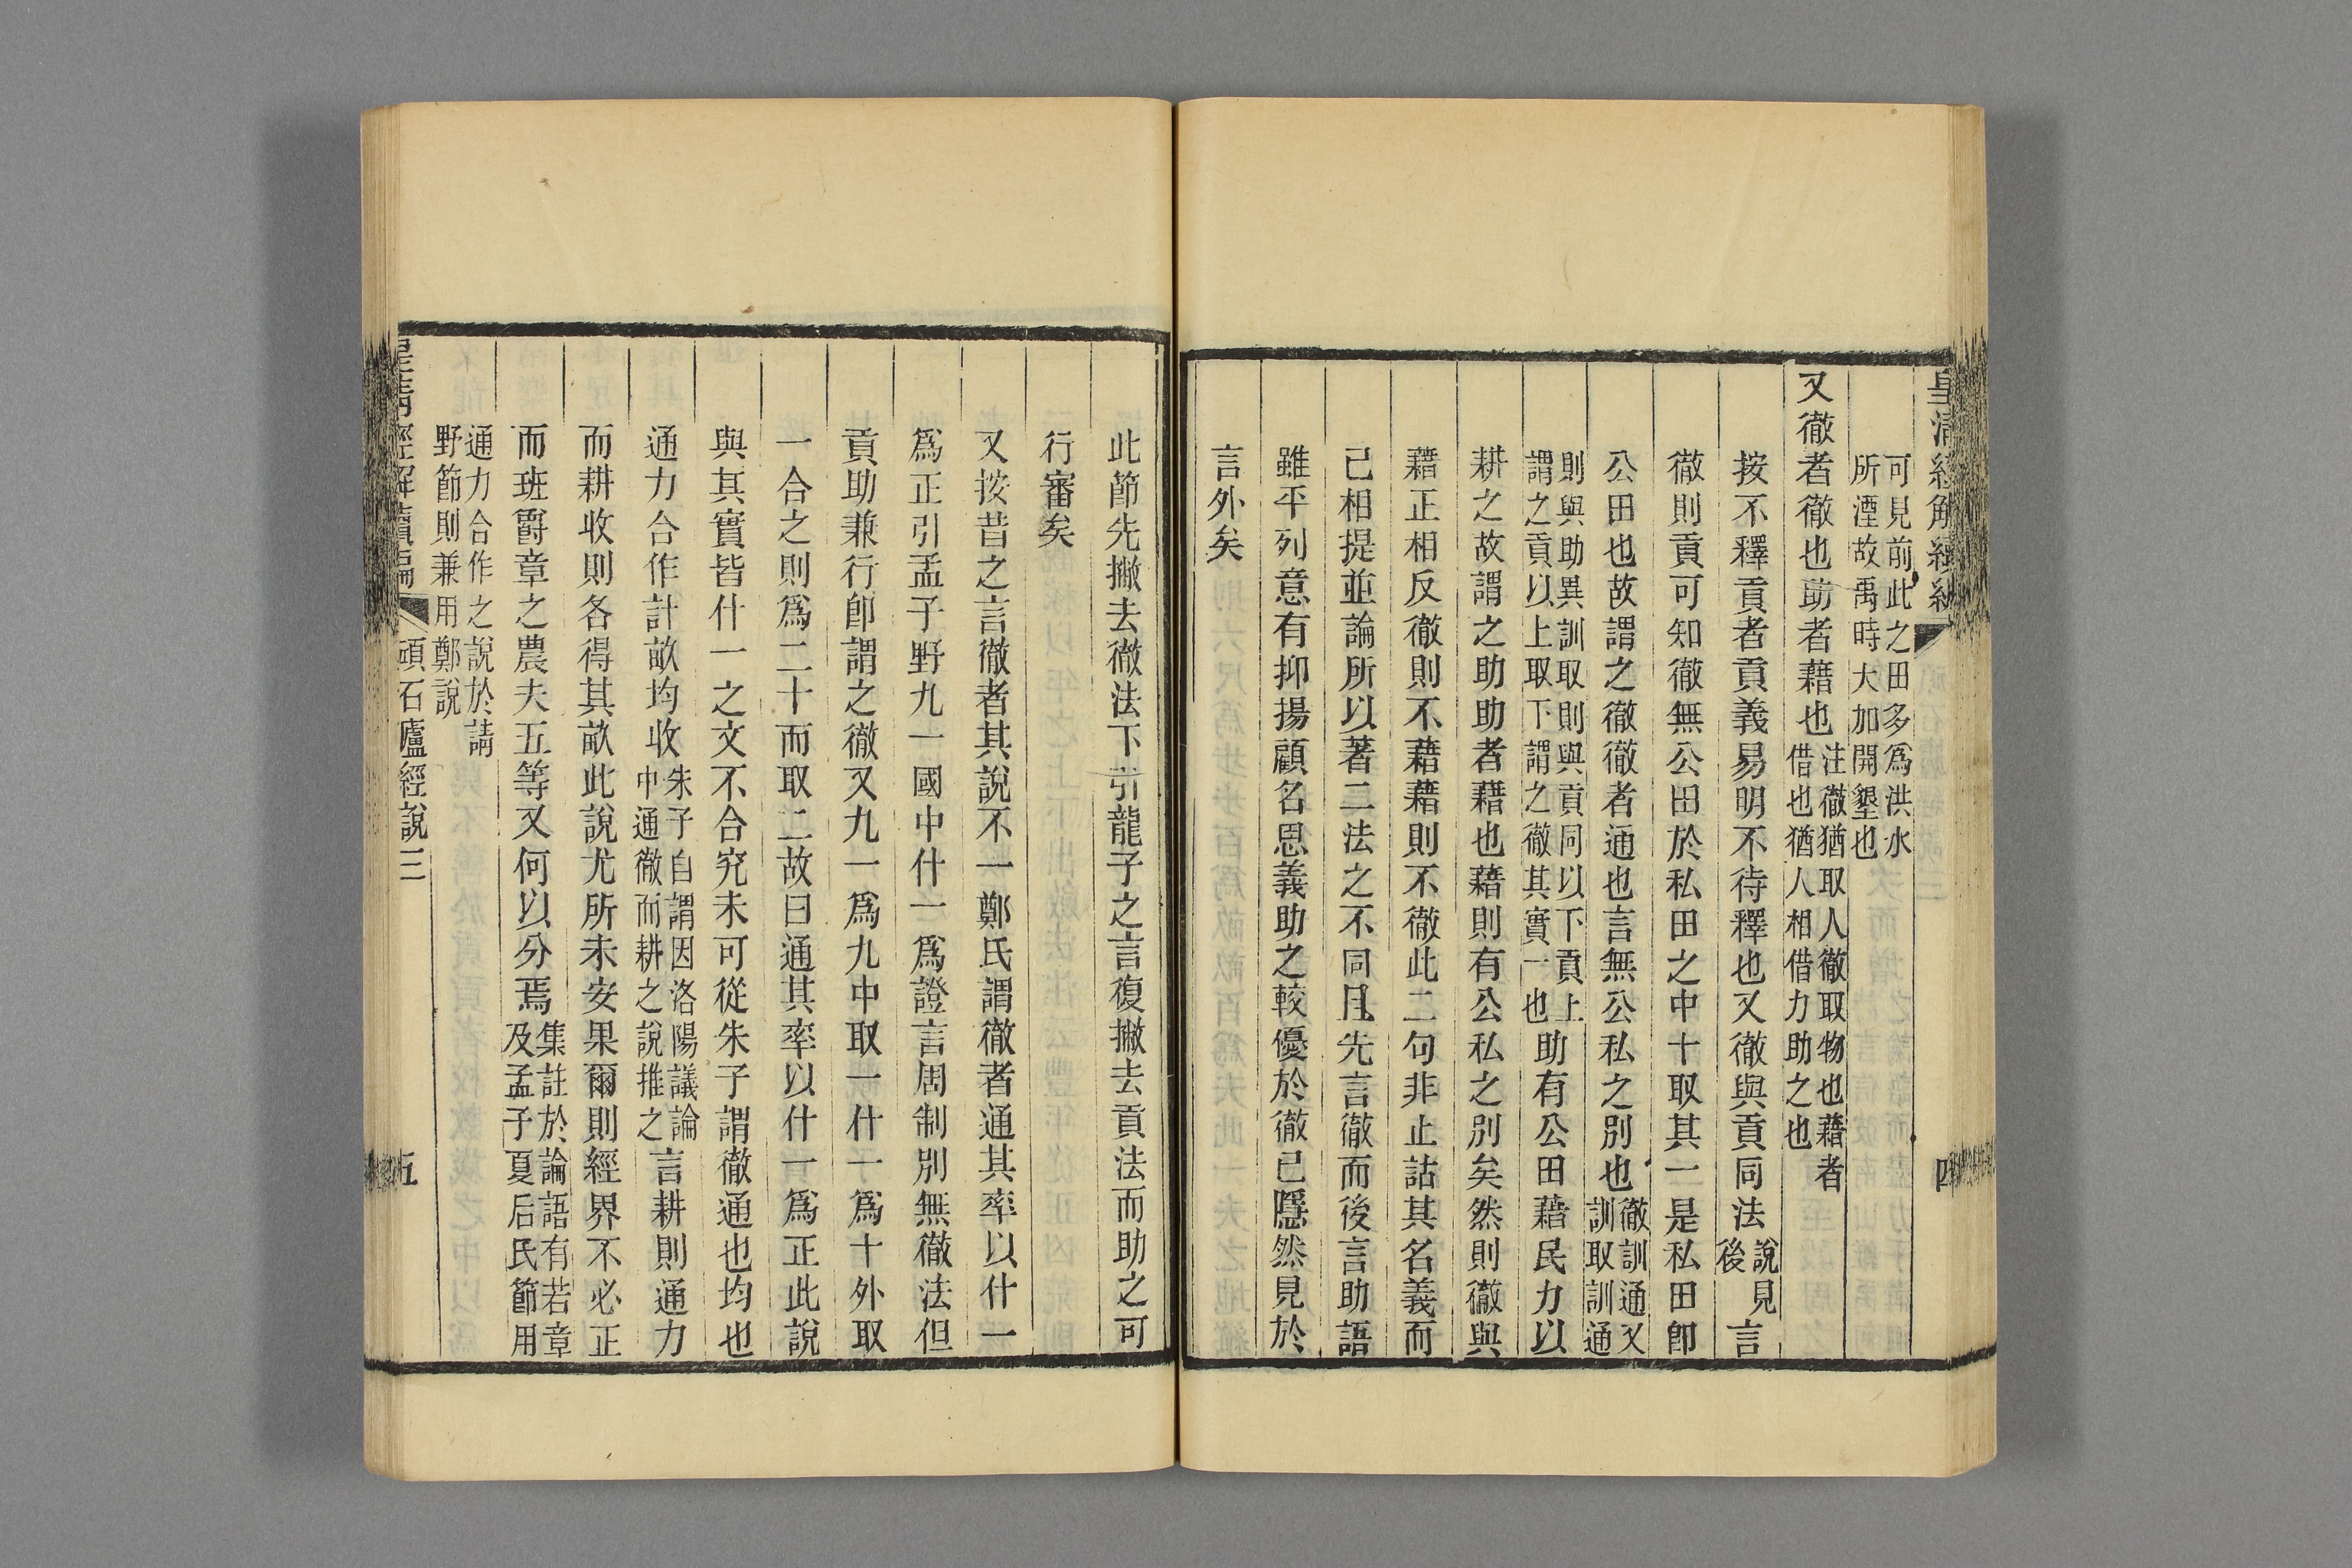 皇清經解續編
可見前此之田多爲洪水
所湮故禹時大加開墾也
又徹者徹也助者藉也注徹猶取人徹取物也藉者
借也猶人相借力助之也
按不釋貢者貢義易明不待釋也又徹與貢同法說見
後言
徹則貢可知徹無公田於私田之中十取其一是私田卽
公田也故謂之徹徹者通也言無公私之別也徹訓通又
訓取訓通
則與助異訓取則與貢同以下貢上
謂之貢以上取下謂之徹其實一也助有公田藉民力以
耕之故謂之助助者藉也藉則有公私之別矣然則徹與
藉正相反徹則不藉藉則不徹此二句非止詁其名義而
已相提並論所以著二法之不同且先言徹而後言助語
雖平列意有抑揚顧名思義助之較優於徹已隱然見於
言外矣
四
此節先撇去徹法下引龍子之言復撇去貢法而助之可
行審矣
又按昔之言徹者其說不一鄭氏謂徹者通其率以什一
爲正引孟子野九一國中什一爲證言周制別無徹法但
貢助兼行卽謂之徹又九一爲九中取一什一爲十外取
一合之則爲二十而取二故曰通其率以什一爲正此說
與其實皆什一之文不合究未可從朱子謂徹通也均也
通力合作計畝均收朱子自謂因洛陽議論
中通徹而耕之說推之言耕則通力
而耕收則各得其畝此說尤所未安果爾則經界不必正
而班爵章之農夫五等又何以分焉集註於論語有若章
及孟子夏后氏節用
通力合作之說於請
野節則兼用鄭說
皇清經解續編 頑石廬經說三
五